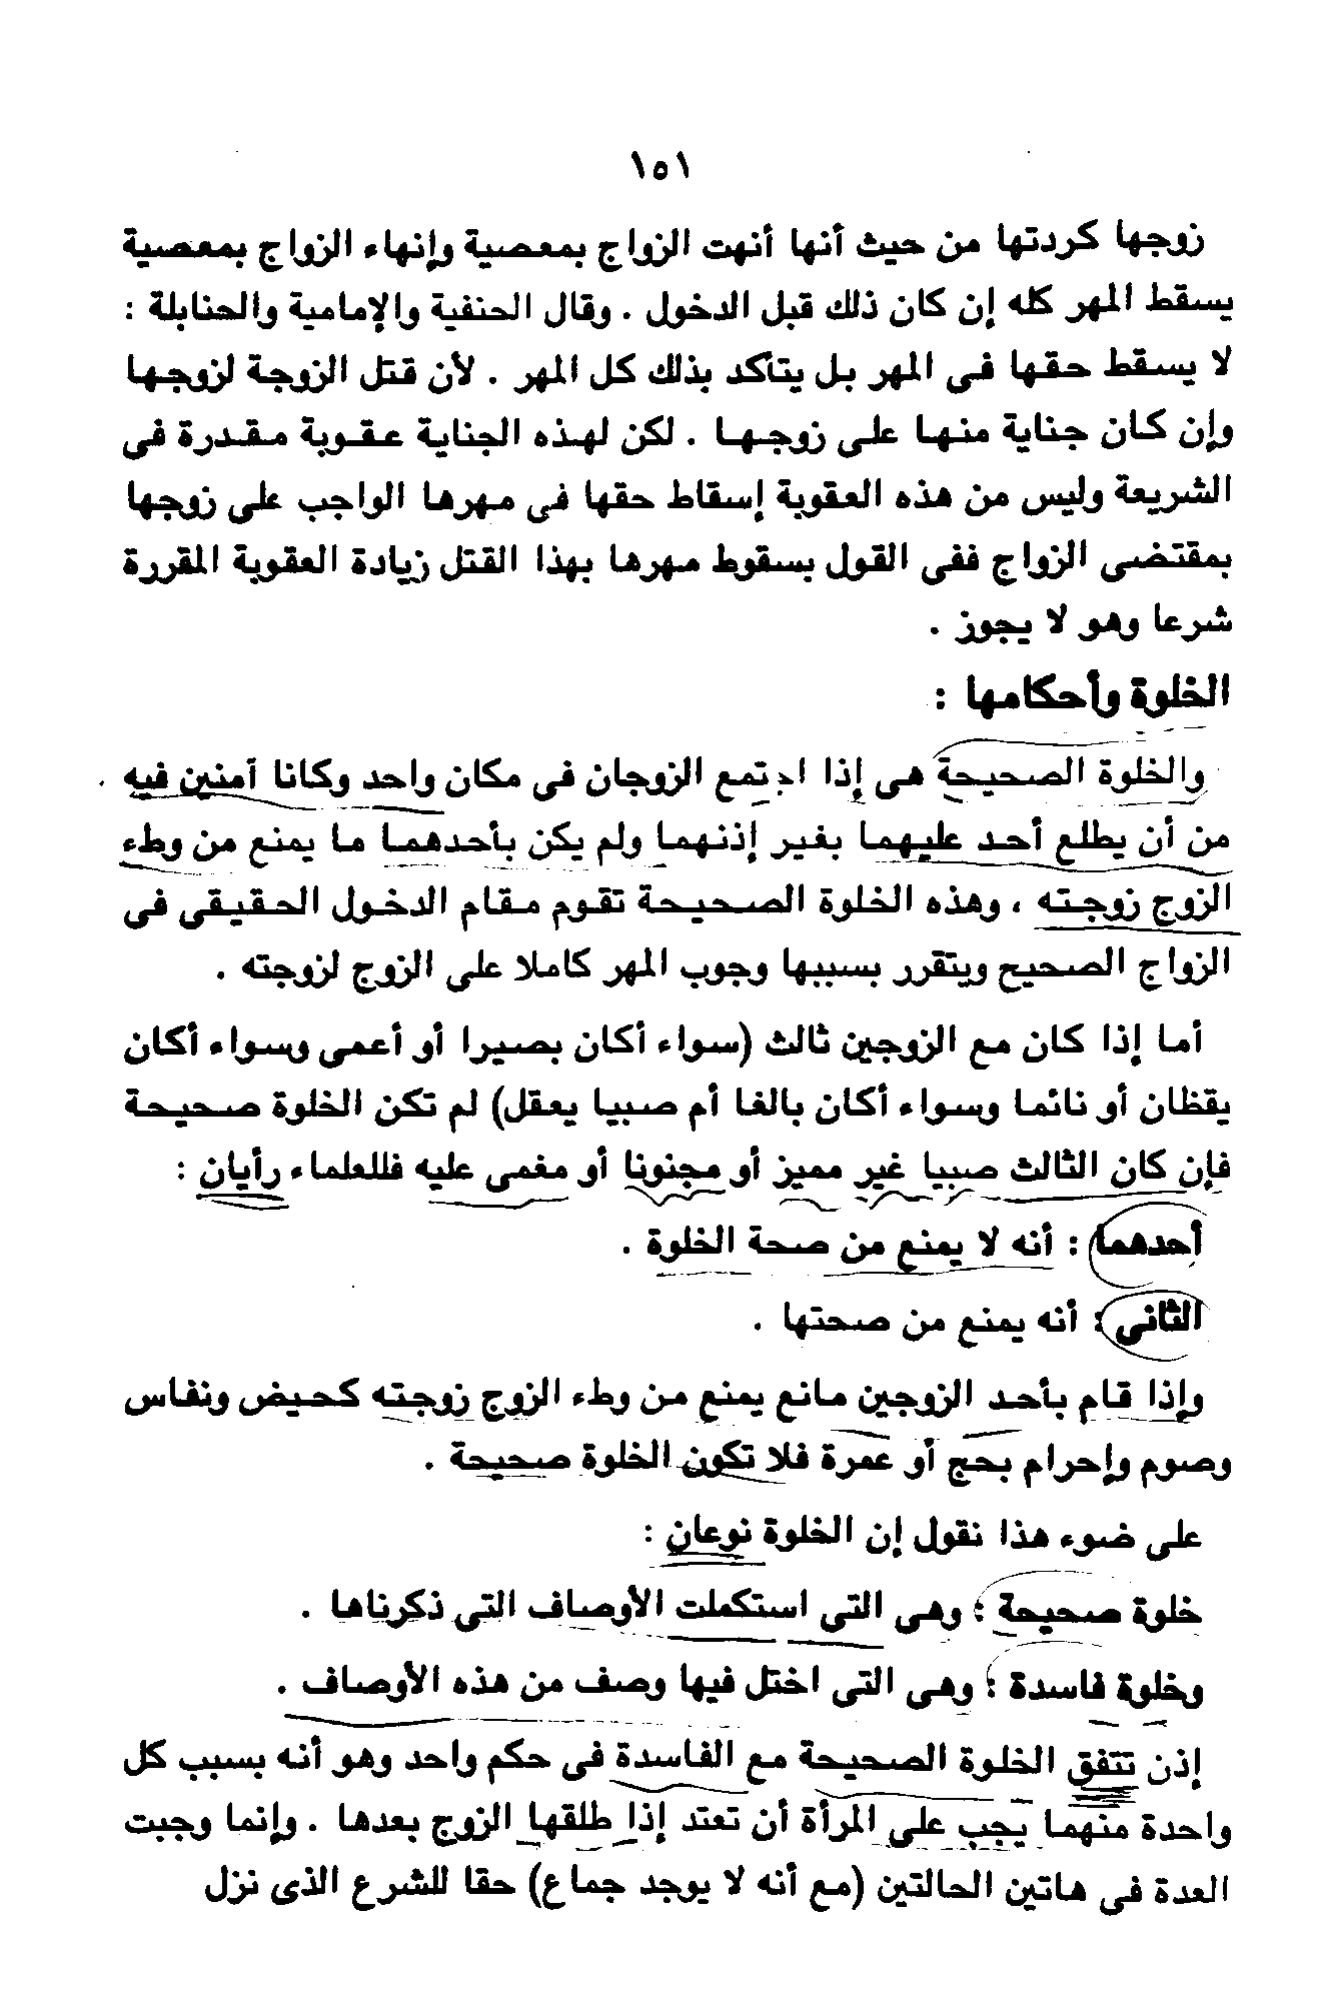 ١٥١
زوجها كردتها من حيث أنها أنهت الزواج بمعصية وإنهاء الزواج بمعصية
يسقط المهر كله إن كان ذلك قبل الدخول . وقال الحنفية والإمامية والحنابلة :
لا يسقط حقها فى المهر بل يتأكد بذلك كل المهر . لأن قتل الزوجة لزوجها
وإن كان جناية منها على زوجها . لكن لهذه الجناية عقوبة مقدرة فى
الشريعة وليس من هذه العقوبة إسقاط حقها فى مهرها الواجب على زوجها
بمقتضى الزواج ففى القول بسقوط مهرها بهذا القتل زيادة العقوبة المقررة
شرعا وهو لا يجوز .
الخلوة وأحكامها :
والخلوة الصحيحة هى إذا اجتمع الزوجان فى مكان واحد وكانا آمنين فيه
من أن يطلع أحد عليهما بغير إذنهما ولم يكن بأحدهما ما يمنع من وطء
الزوج زوجته ، وهذه الخلوة الصحيحة تقوم مقام الدخول الحقيقى فى
الزواج الصحيح ويتقرر بسببها وجوب المهر كاملا على الزوج لزوجته .
أما إذا كان مع الزوجين ثالث (سواء أكان بصيرا أو أعمى وسواء أكان
يقظان أو نائما وسواء أكان بالغا أم صبيا يعقل) لم تكن الخلوة صحيحة
فإن كان الثالث صبيا غير مميز أو مجنونا أو مغمى عليه فللعلماء رأيان :
أحدهما : أنه لا يمنع من صحة الخلوة .
الثانى : أنه يمنع من صحتها .
وإذا قام بأحد الزوجين مانع يمنع من وطء الزوج زوجته كحيض ونفاس
وصوم وإحرام بحج أو عمرة فلا تكون الخلوة صحيحة .
على ضوء هذا نقول إن الخلوة نوعان :
خلوة صحيحة : وهى التى استكملت الأوصاف التى ذكرناها .
وخلوة فاسدة : وهى التى اختل فيها وصف من هذه الأوصاف .
إذن تتفق الخلوة الصحيحة مع الفاسدة فى حكم واحد وهو أنه بسبب كل
واحدة منهما يجب على المرأة أن تعتد إذا طلقها الزوج بعدها . وإنما وجبت
العدة فى هاتين الحالتين (مع أنه لا يوجد جماع) حقا للشرع الذى نزل